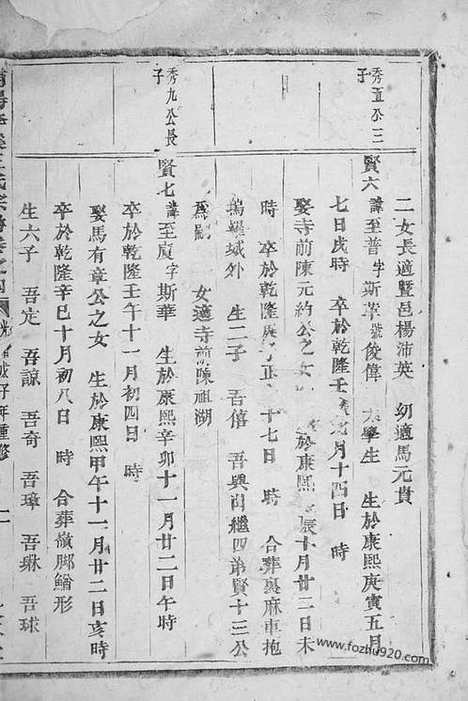 二女長適暨邑楊沛英 幼適馬元貴
秀直公三子
賢六 諱至普字斯 號俊偉 大學生 生於康熙庚寅五月
七日戌時 卒於乾隆壬 月十四日 時
娶寺前陳元約公之女 於康熙 辰十月廿二日未
時 卒於乾隆 正 十七日 時 合葬裏麻車抱
塢墨域外 生二子 吾僖 吾興 繼四弟賢十三公
爲嗣 女適寺前陳祖湖
秀九公長子
賢七 諱至 字斯華 生於康熙辛卯十一月廿二日午時
卒於乾隆壬午十一月初四日 時
娶馬有章公之女 生於康熙甲午十一月廿二日亥時
卒於乾隆辛巳十月初八日 時 合葬嶺脚鰌形
生六子 吾定 吾諒 吾奇 吾璋 吾琳 吾球
王氏宗譜卷之
年重修
www.fozhu920.com